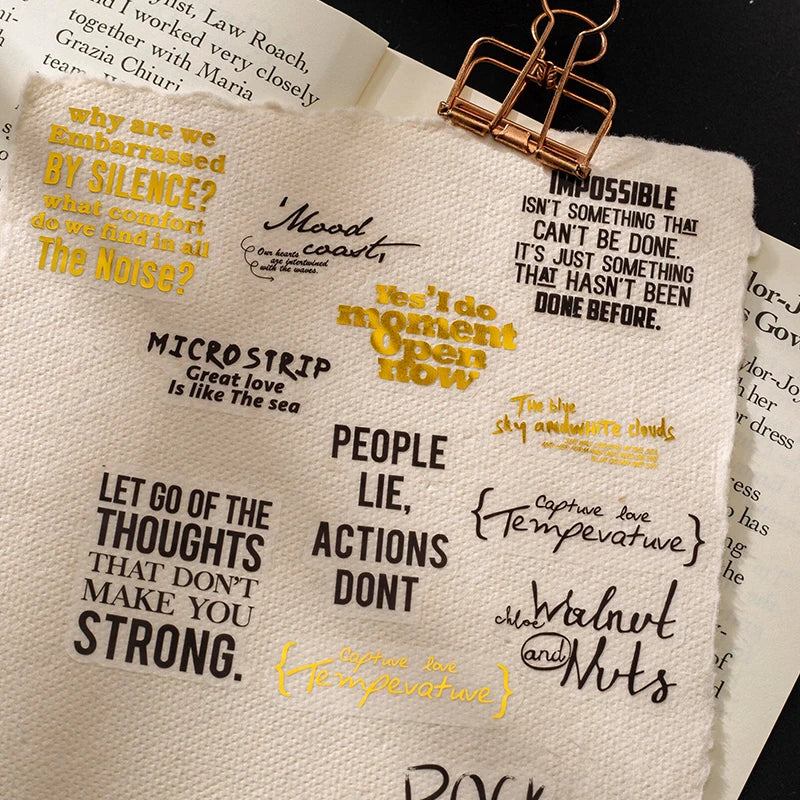 ylist, Law Roach,
and I worked very closely
together with Maria
Grazia Chiuri
why are we
Embarrassed
BY SILENCE?
what comfort
do we find in all
The Noise?
'Mood
coast,
Our hearts
are intertwined
with the waves.
IMPOSSIBLE
ISN'T SOMETHING THAT
CAN'T BE DONE.
IT'S JUST SOMETHING
THAT HASN'T BEEN
DONE BEFORE.
Yes' I do
moment
open
now
MICROSTRIP
Great love
Is like The sea
The blue
sky andwhite clouds
PEOPLE
LIE,
ACTIONS
DONT
LET GO OF THE
THOUGHTS
THAT DON'T
MAKE YOU
STRONG.
{Captuve love
Tempevatuve}
chloe Walnut
and Nuts
{Captuve love
Tempevatuve}
ROCK
lor-J
s Gov
ylor-Jo
h her
r dress
ress
o has
ng
he
of
d